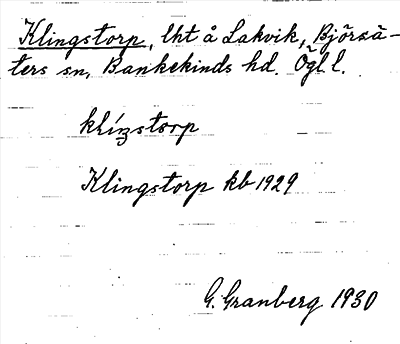 Klingstorp, lht å Lakvik, Björsä-
ters sn, Bankekinds hd. Ögl l.
klíŋstorp
Klingstorp kb 1929
G. Granberg 1930